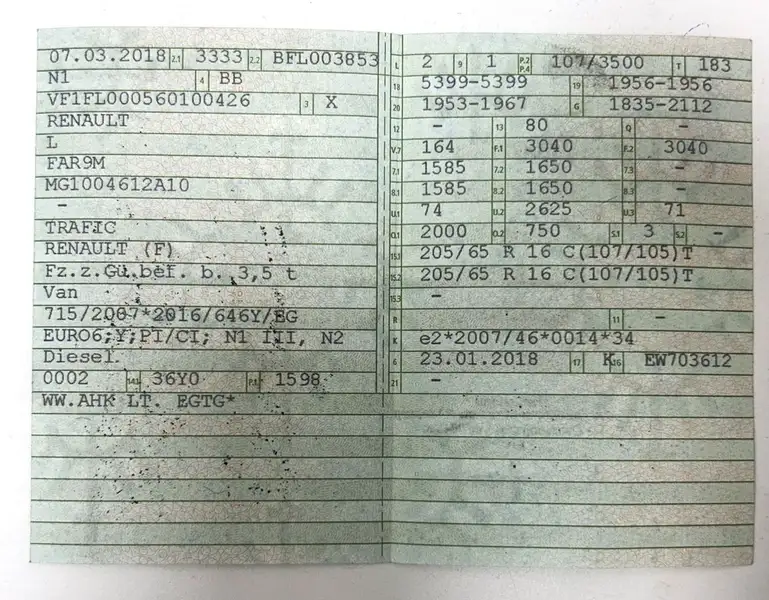 07.03.2018 2.1 3333 2.2 BFL003853
N1 4 BB
VF1FL000560100426 3 X
RENAULT
L
FAR9M
MG1004612A10
-
TRAFIC
RENAULT (F)
Fz.z.Gü.bef. b. 3,5 t
Van
715/2007*2016/646Y/EG
EURO6;Y;PI/CI; N1 III, N2
Diesel
0002 14.1 36Y0 P.1 1598
WW.AHK LT. EGTG*
L 2 9 1 P.2 P.4 107/3500 T 183
18 5399-5399 19 1956-1956
20 1953-1967 G 1835-2112
12 - 13 80 Q -
V.7 164 F.1 3040 F.2 3040
7.1 1585 7.2 1650 7.3 -
8.1 1585 8.2 1650 8.3 -
U.1 74 U.2 2625 U.3 71
O.1 2000 O.2 750 S.1 3 S.2 -
15.1 205/65 R 16 C(107/105)T
15.2 205/65 R 16 C(107/105)T
15.3 -
R 11 -
K e2*2007/46*0014*34
6 23.01.2018 17 K 16 EW703612
21 -